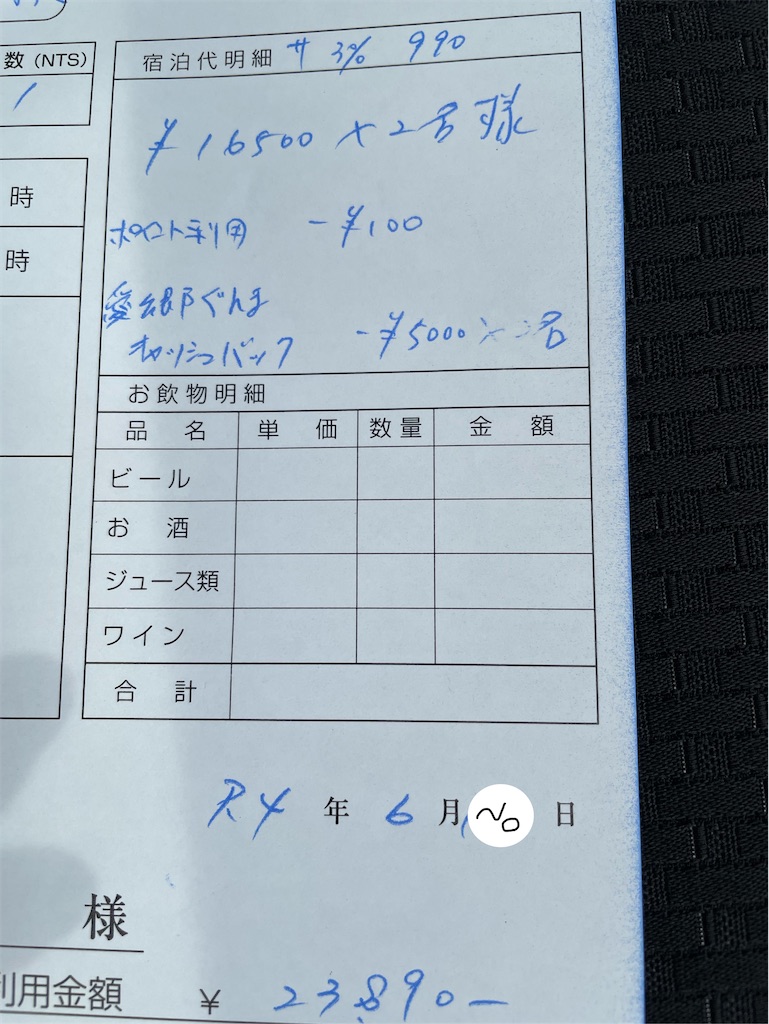 数(NTS)
1
時
時
宿泊代明細 サ 3% 990
¥16500×2名様
ポイント利用 -¥100
愛郷ぐんま
キャッシュバック -¥5000×2名
お飲物明細
品名 単価 数量 金額
ビール
お酒
ジュース類
ワイン
合計
R4年6月 日
様
利用金額 ¥23890-